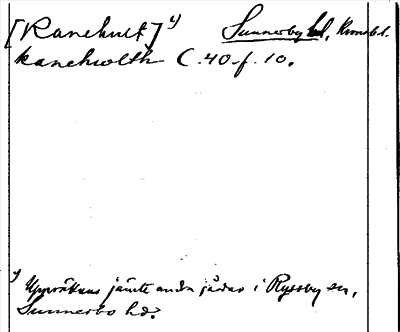 [Kanehult] 1) Sunnerbo hd, Kronob.l.
kanehwlth C. 40. f. 10.
1) Uppräknas jämte andra gårdar i Ryssby sn,
Sunnerbo hd.